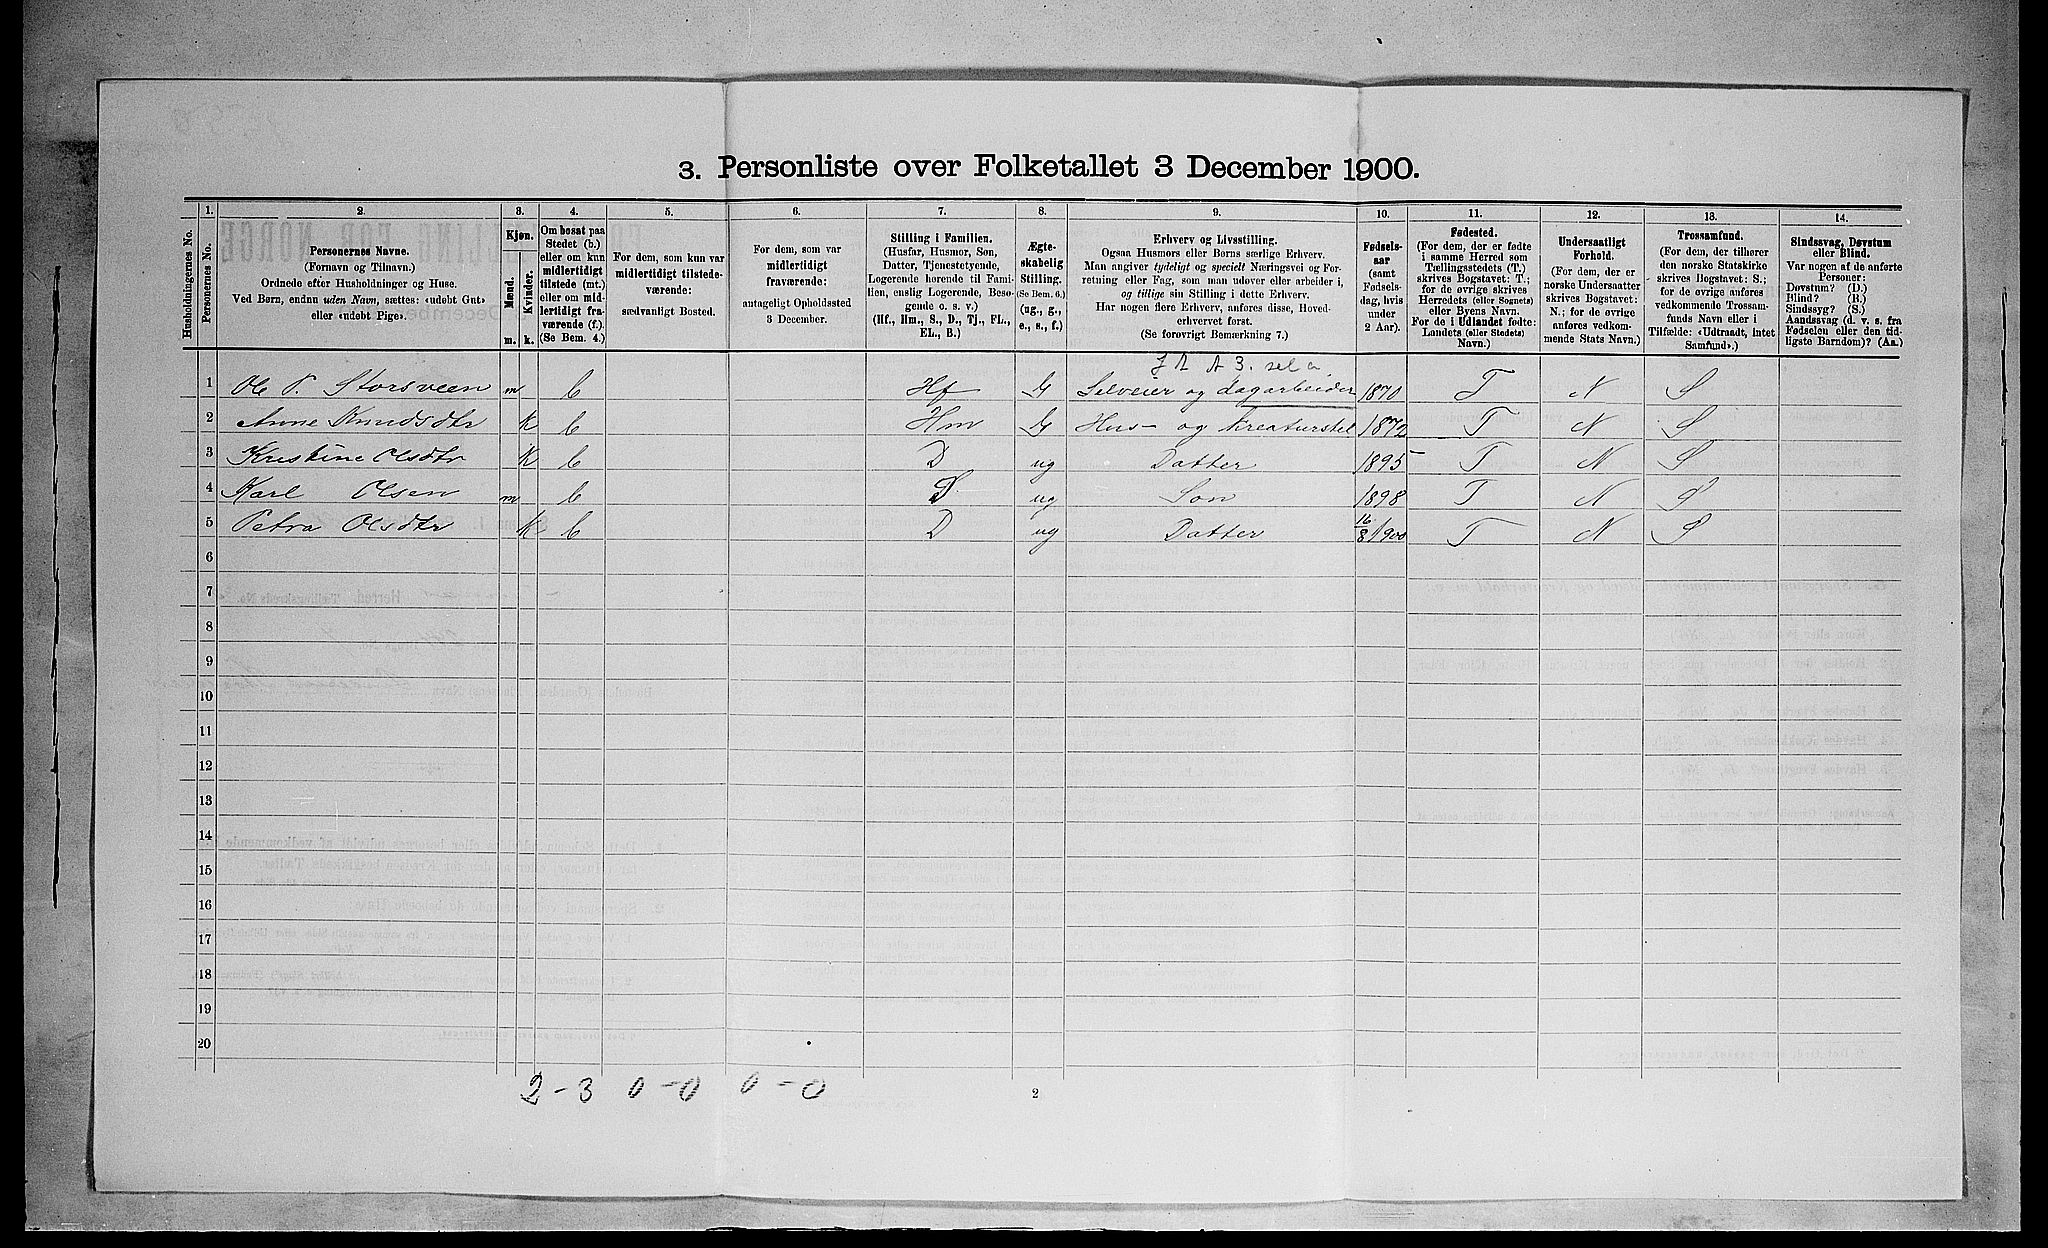 3. Personliste over Folketallet 3 December 1900.
1. 2. 3. 4. 5. 6. 7. 8. 9. 10. 11. 12. 13. 14.
Husholdningernes No.
Personernes No.
Personernes Navne.
(Fornavn og Tilnavn.)
Ordnede efter Husholdninger og Huse.
Ved Børn, endnu uden Navn, sættes: «udøbt Gut»
eller «udøbt Pige».
Kjøn.
Mænd.
Kvinder.
m. k.
Om bosat paa
Stedet (b.)
eller om kun
midlertidigt
tilstede (mt.)
eller om mid-
lertidigt fra-
værende (f.)
(Se Bem. 4.)
For dem, som kun var
midlertidigt tilstede-
værende:
sædvanligt Bosted.
For dem, som var
midlertidigt
fraværende:
antageligt Opholdssted
3 December.
Stilling i Familien.
(Husfar, Husmor, Søn,
Datter, Tjenestetyende,
Logerende hørende til Fami-
lien, enslig Logerende, Besø-
gende o. s. v.)
(Hf., Hm., S., D., Tj., FL.,
EL., B.)
Ægte-
skabelig
Stilling.
(Se Bem. 6.)
(ug., g.,
e., s., f.)
Erhverv og Livsstilling.
Ogsaa Husmors eller Børns særlige Erhverv.
Man angiver tydeligt og specielt Næringsvei og For-
retning eller Fag, som man udøver eller arbeider i,
og tillige sin Stilling i dette Erhverv.
Har nogen flere Erhverv, anføres disse, Hoved-
erhvervet først.
(Se forøvrigt Bemærkning 7.)
Fødsels-
aar
(samt
Fødsels-
dag, hvis
under
2 Aar).
Fødested.
(For dem, der er fødte
i samme Herred som
Tællingsstedets (T.)
skrives Bogstavet: T.;
for de øvrige skrives
Herredets (eller Sognets)
eller Byens Navn.
For de i Udlandet fødte:
Landets (eller Stedets)
Navn.)
Undersaatligt
Forhold.
(For dem, der er
norske Undersaatter
skrives Bogstavet:
N.; for de øvrige
anføres vedkom-
mende Stats Navn.)
Trossamfund.
(For dem, der tilhører
den norske Statskirke
skrives Bogstavet: S.;
for de øvrige anføres
vedkommende Trossam-
funds Navn eller i
Tilfælde: «Udtraadt, intet
Samfund».)
Sindssvag, Døvstum
eller Blind.
Var nogen af de anførte
Personer:
Døvstum? (D.)
Blind? (B.)
Sindssyg? (S.)
Aandssvag (d. v. s. fra
Fødselen eller den tid-
ligste Barndom)? (Aa.)
1 Ole P. Storsveen m b Hf G Selveier og dagarbeider 1870 T N S
2 Anne Knudsdtr k b Hm G Hus- og kreaturstel 1872 T N S
3 Kristine Olsdtr k b D ug Datter 1895 T N S
4 Karl Olsen m b S ug Søn 1898 T N S
5 Petra Olsdtr k b D ug Datter 16/8 1900 T N S
6
7
8
9
10
11
12
13
14
15
16
17
18
19
20
2 - 3 0 - 0 0 - 0
2